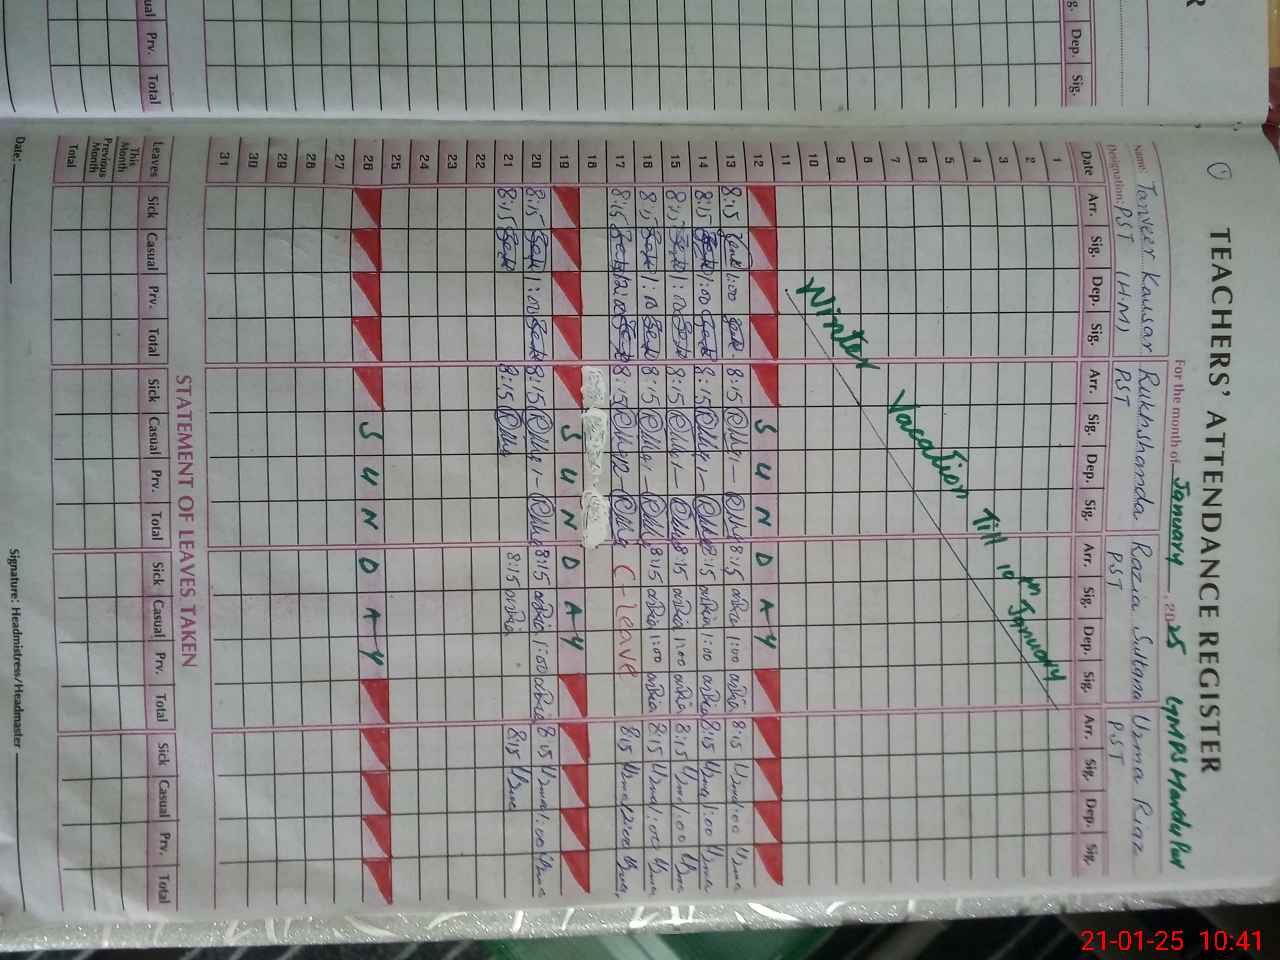 TEACHERS' ATTENDANCE REGISTER
For the month of January, 2025 GMPS
Name: Tanveer Kausar Rukhshanda Razia Sultana Uzma Riaz
Designation: PST (H.M) PST PST PST
Date Arr. Sig. Dep. Sig. Arr. Sig. Dep. Sig. Arr. Sig. Dep. Sig. Arr. Sig. Dep. Sig.
1
2
3
4
5
6
7
8
9
10
11
Winter Vacation Till 10th January
12 SUNDAY
13 8:15 1:00 8:15 1- 8:15 1:00 8:15 Uzma 1:00 Uzma
14 8:15 1:00 8:15 1- 8:15 1:00 8:15 Uzma 1:00 Uzma
15 8:15 1:00 8:15 1- 8:15 1:00 8:15 Uzma 1:00 Uzma
16 8:15 1:00 8:15 1- 8:15 1:00 8:15 Uzma 1:00 Uzma
17 8:15 12:00 8:15 12- C-leave 8:15 Uzma 12:00 Uzma
18
19 SUNDAY
20 8:15 1:00 8:15 1- 8:15 1:00 8:15 Uzma 1:00 Uzma
21 8:15 8:15 8:15 8:15 Uzma
22
23
24
25
26 SUNDAY
27
28
29
30
31
STATEMENT OF LEAVES TAKEN
Leaves Sick Casual Prv. Total Sick Casual Prv. Total Sick Casual Prv. Total Sick Casual Prv. Total
This Month
Previous Month
Total
Date: Signature: Headmistress/Headmaster
R
g. Dep. Sig.
ual Prv. Total
21-01-25 10:41